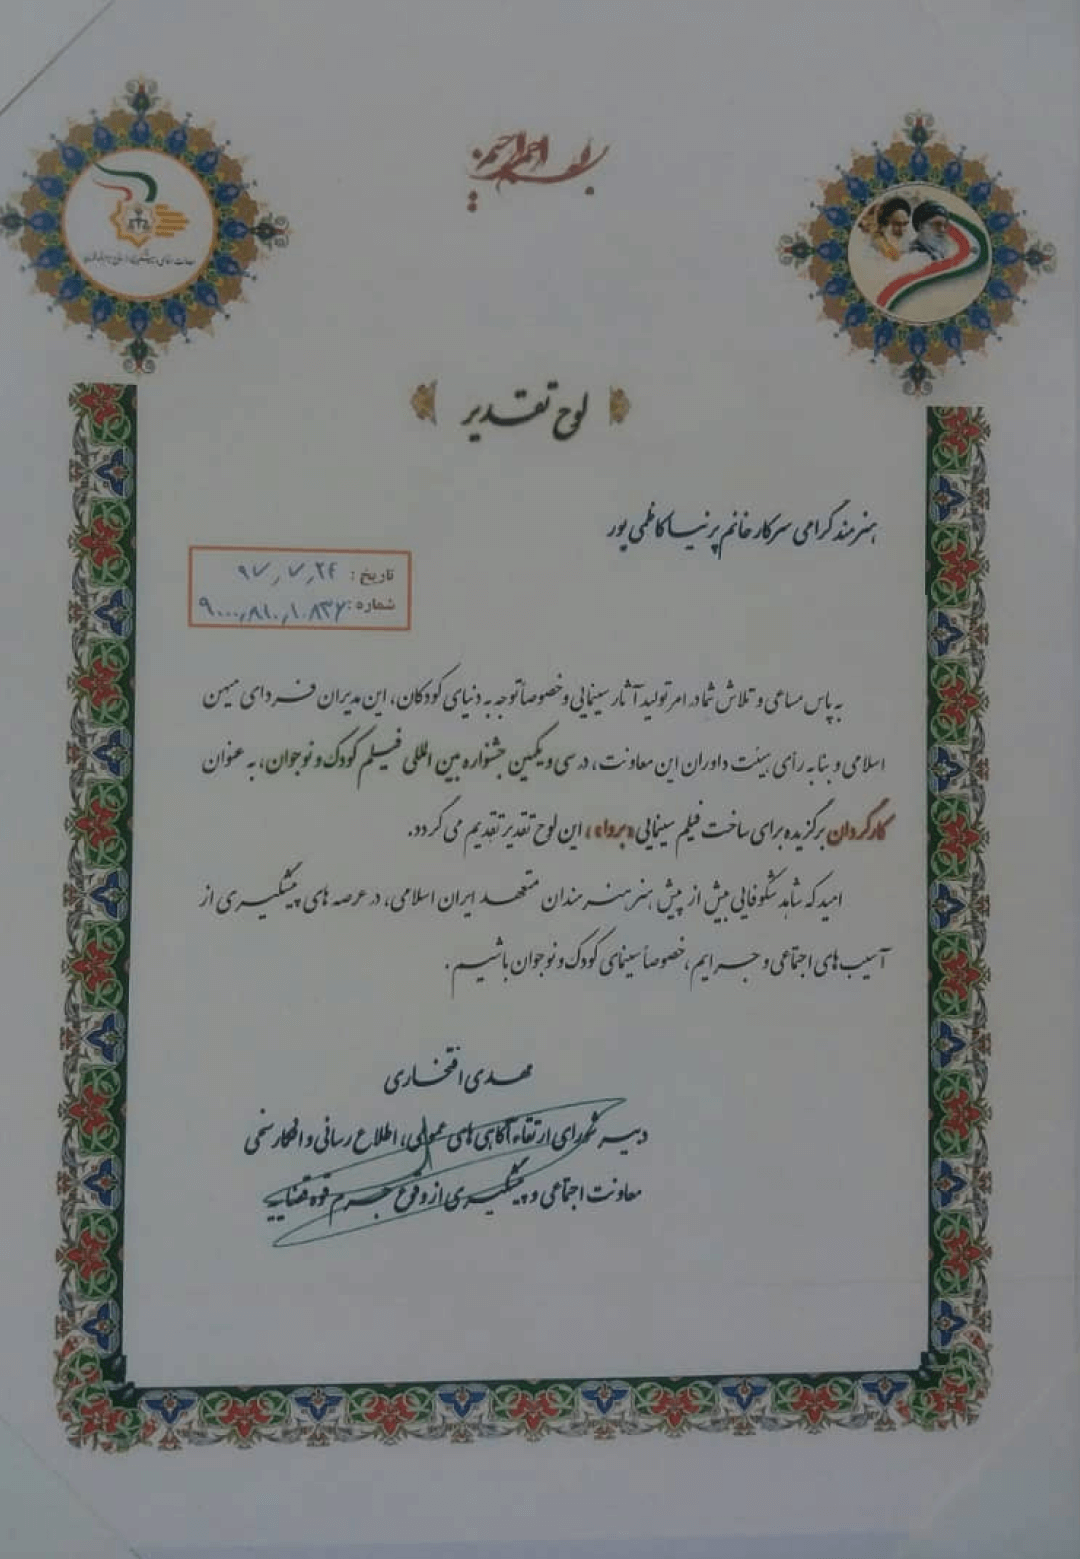 بسم الله الرحمن الرحیم
لوح تقدیر
هنرمند گرامی سرکار خانم پرنیا کاظمی پور
تاریخ : ۹۷٫۷٫۲۴
شماره : ۹۰۰۰٫۸۱۰٫۱۰۸۳۶
به پاس مساعی و تلاش شما در امر تولید آثار سینمایی و خصوصاً توجه به دنیای کودکان، این مدیران فردای میهن
اسلامی و بنا به رأی هیئت داوران این معاونت، در سی و یکمین جشنواره بین المللی فیلم کودک و نوجوان، به عنوان
کارگردان برگزیده برای ساخت فیلم سینمایی «پروا»، این لوح تقدیر تقدیم می گردد.
امید که شاهد شکوفایی بیش از پیش هنر هنرمندان متعهد ایران اسلامی، در عرصه های پیشگیری از
آسیب های اجتماعی و جرایم، خصوصاً سینمای کودک و نوجوان باشیم.
مهدی افتخاری
دبیر شورای ارتقاء آگاهی های عمومی، اطلاع رسانی و افکارسنجی
معاونت اجتماعی و پیشگیری از وقوع جرم قوه قضاییه